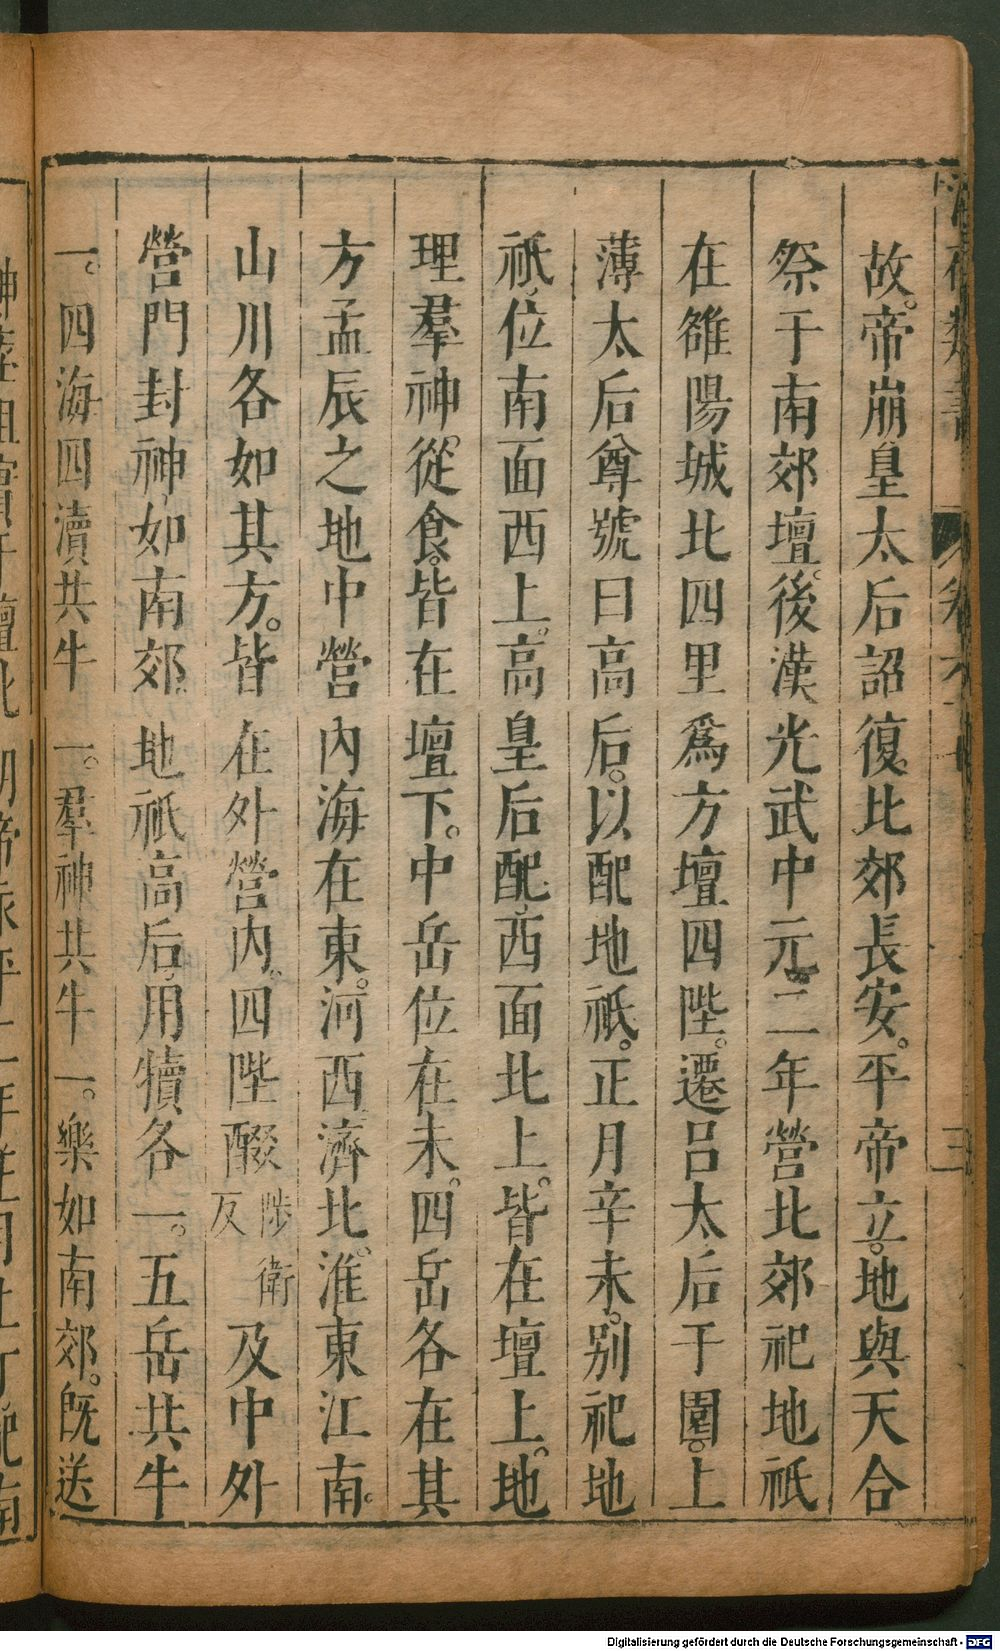 故帝崩皇太后詔復北郊長安平帝立地與天合
祭于南郊壇後漢光武中元二年營北郊祀地祇
在雒陽城北四里爲方壇四陛遷呂太后于園上
薄太后尊號曰高后以配地祇正月辛未別祀地
祇位南面西上高皇后配西面北上皆在壇上地
理羣神從食皆在壇下中岳位在未四岳各在其
方孟辰之地中營內海在東河西濟北淮東江南
山川各如其方皆在外營內四陛醊陟衛反及中外
營門封神如南郊地祇高后用犢各一五岳共牛
一四海四瀆共牛一羣神共牛一樂如南郊旣送
Digitalisierung gefördert durch die Deutsche Forschungsgemeinschaft - DFG